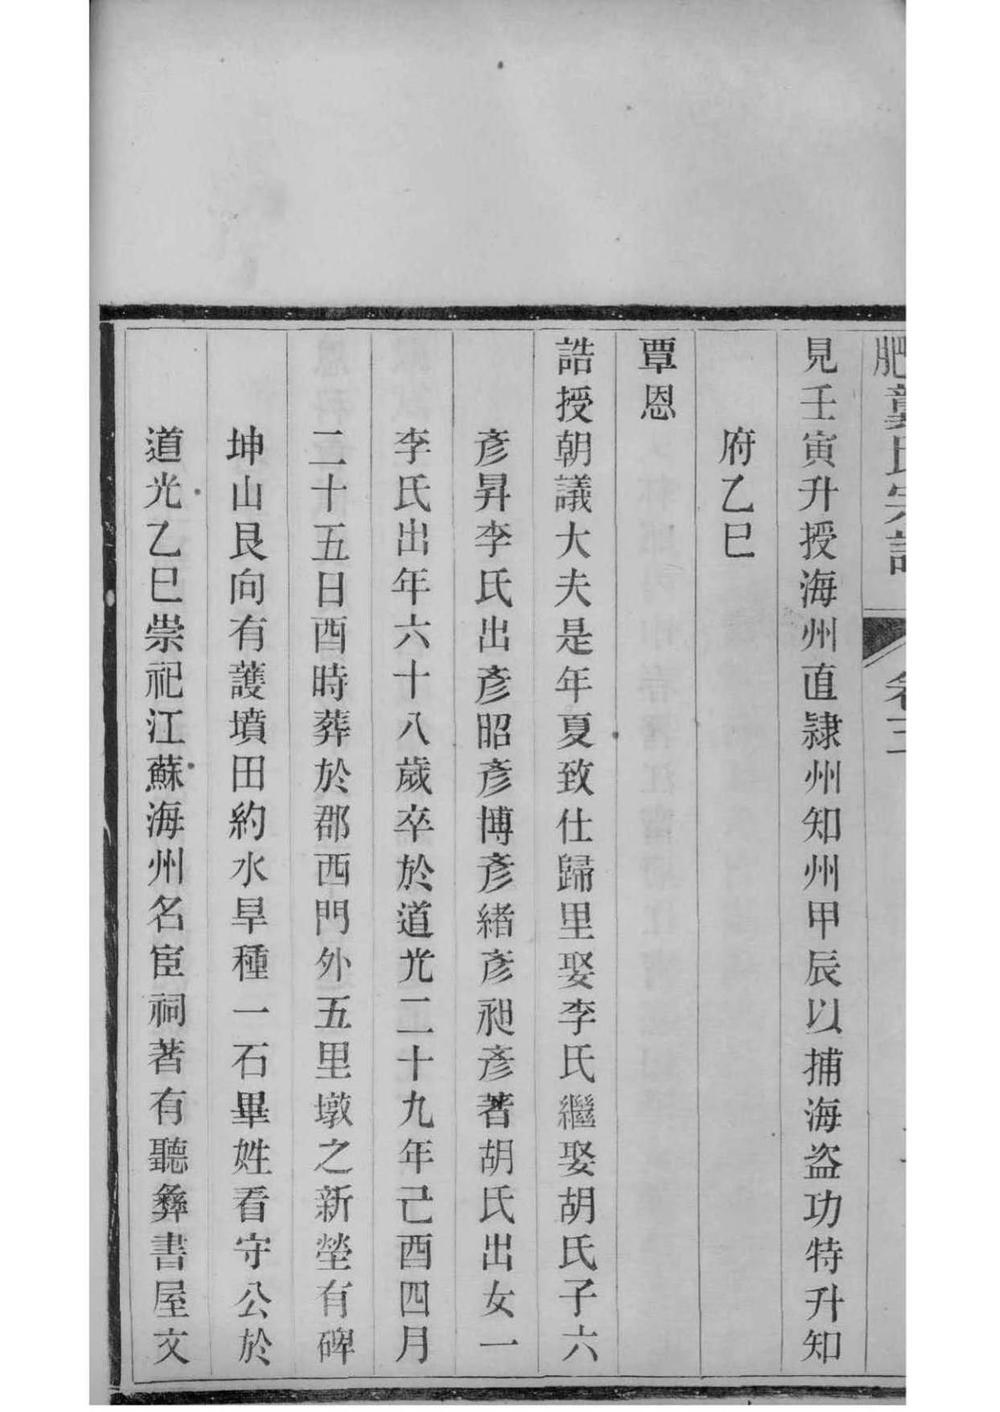 肥龔氏宗譜 卷三
見壬寅升授海州直隸州知州甲辰以捕海盗功特升知
府乙巳
覃恩
誥授朝議大夫是年夏致仕歸里娶李氏繼娶胡氏子六
彥昇李氏出彥昭彥博彥緒彥昶彥著胡氏出女一
李氏出年六十八歲卒於道光二十九年己酉四月
二十五日酉時葬於郡西門外五里墩之新塋有碑
坤山艮向有護墳田約水旱種一石畢姓看守公於
道光乙巳崇祀江蘇海州名宦祠著有聽彝書屋文